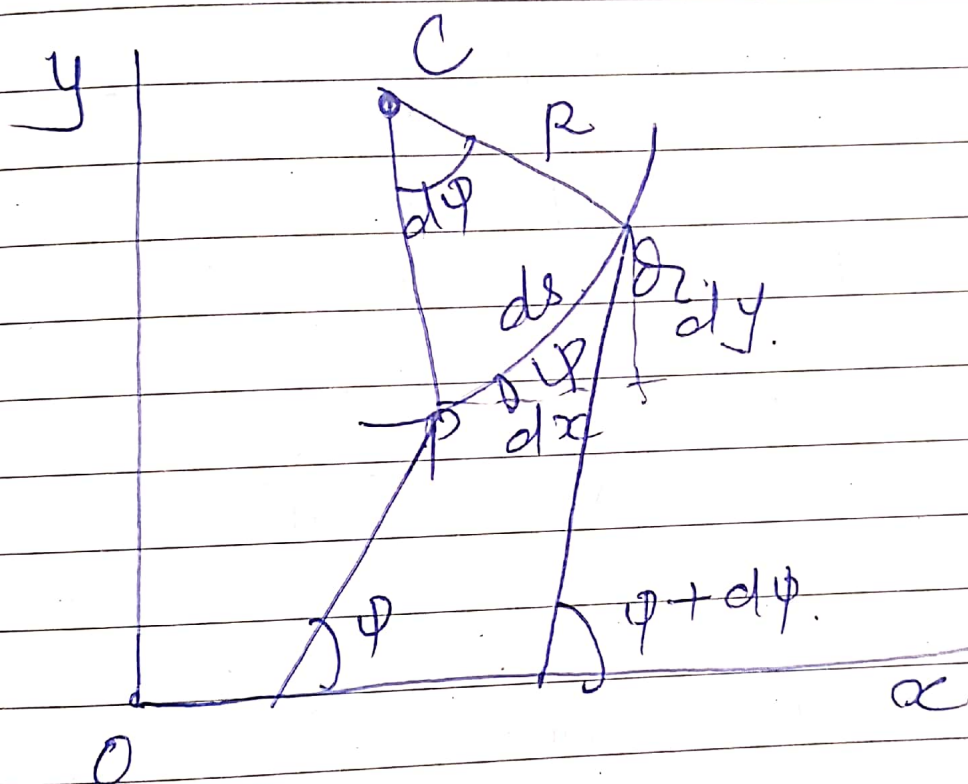 C
y
R
dψ
ds
Q
dy.
ψ
dx
P
ψ
ψ + dψ.
x
O